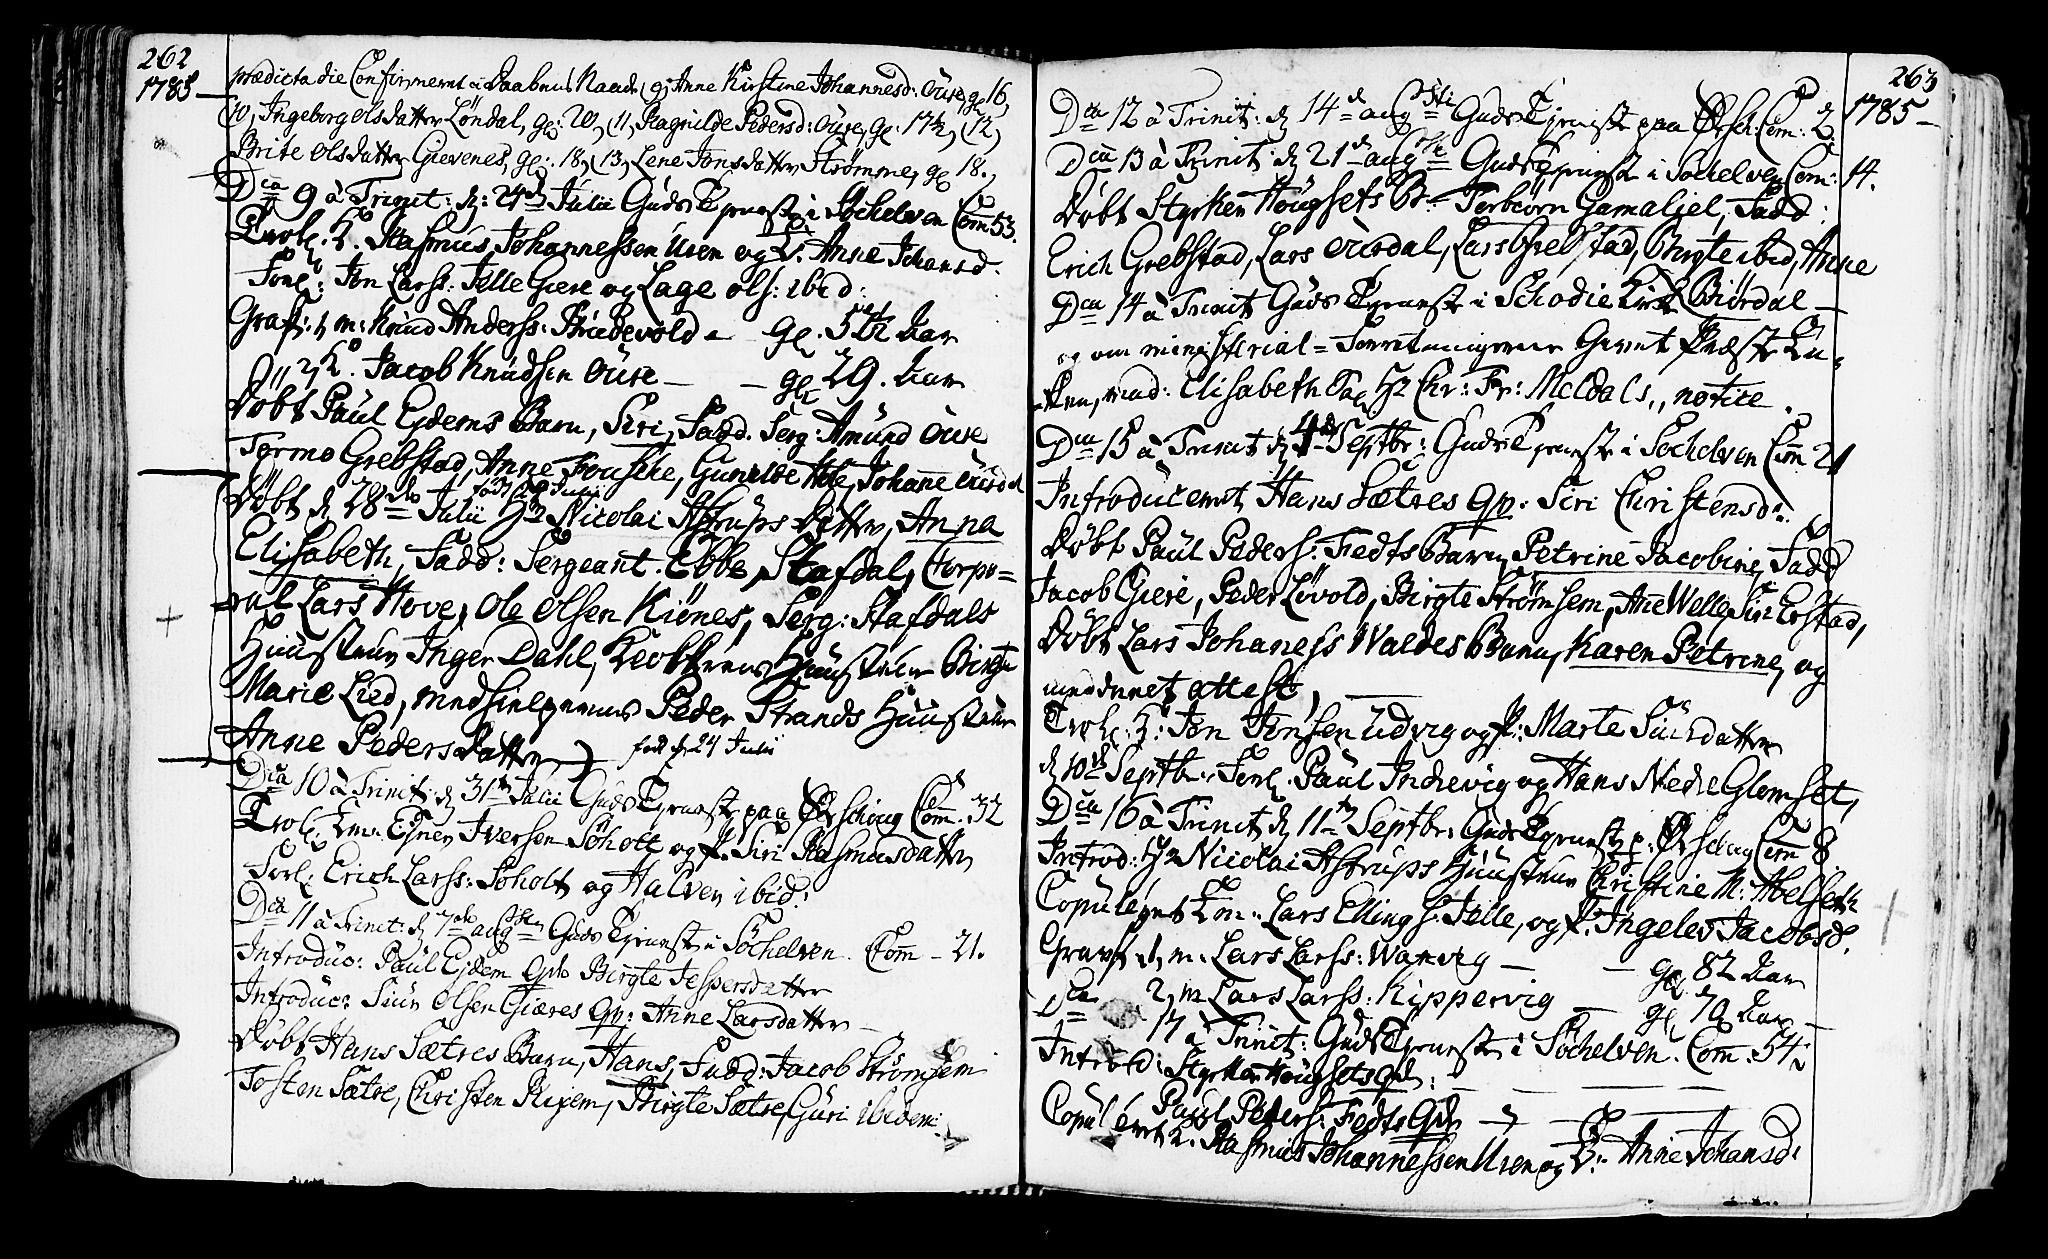 262
1785
prædicta die Confirmeret i Daabens Naade, 9, Anne Kirstine Johannesd: Ouse, gl 16,
10, Ingeborg olsdatter Løndal, gl: 20, (11, Ragnilde Pedersd: Ouse, gl: 17½, (12)
Brite Olsdatter Gievenes, gl: 18, (13, Lene Jonsdatter Strømme, gl 18.
Dca 9 à Trinit: d: 24de Julii Guds Tjeneste i Søchelven Com: 53.
Trol: K. Rasmus Johannessen Uren og E. Anne Johansd.
Forl: Jon Larss: Jelle Giere og Lage ols: ibid:
Graf: 1, m: Knud Anderss: Brudevold - gl. 5½ Aar
2, K. Jacob Knudsen Ouse - - gl 29. Aar
Døbt Paul Ejdems Barn, Siri, Fadd. Serg: Amund Ouse
Tormo Grebstad, Anne Frushe, Gunilde Hole, Johane Aurdal
Døbt d 28de Julii Hr Nicolai Astrups Datter, Anna
Elisabeth, Fadd: Sergeant Ebbe Stafdal, Corpo=
ral Lars Hove, Ole Olsen Kiønes, Serg: Stafdals
Huustrue Inger Dahl, Huustrue Birgte
Marie Lied, medhielperens Peder Strands Huustrue
Anne Pedersdatter) født d. 24 Julii
Dca 10 à Trinit: d 31te Julii Guds Tjeneste paa Ørschoug Com. 32
Trol. Em. Ejner Iversen Søholt og P. Siri Rasmusdatter
Forl: Erich Larss: Soholt og Halven ibid:
Dca 11 à Trinit: d 7de augsti Guds Tjeneste i Søchelven. Com - 21.
Introduc: Paul Ejdem Qvd Birgte Jespersdatter
Introduc: Siur Olsen Giæres Qv: Anne Larsdatter -
Døbt Hans Sætres Barn, Hans, Fadd: Jacob Strømsem
Tosten Sætre, Christen Rejem, Birgte Sætre, Guri ibidem:
263
1785
Dca 12 à Trinit: d 14de augsti Guds Tjeneste paa Ørsch: Com: 2.
Dca 13 à Trinit: d 21de augsti Guds Tjeneste i Søchelven Com: 14.
Døbt Styrker Hougsets B. Torbiørn Gamaliel, Fadd:
Erich Grebstad, Lars Aurdal, Lars Grebstad, Birgte ibid, Anne
Dca 14 à Trinit Guds Tjeneste i Schodie Kirke Biørdal -
og om ministerial = Forretningerne Præste En-
-ken, mad: Elisabeth Hr Chr: Fr: Meldals, notice.
Dca 15 à Trinit d 4de Septbr: Guds Tjeneste i Søchelven Com 21
Introduceret Hans Sætres Qv: Siri Christensd:
Døbt Paul Pederss: Fedts Barn, Petrine Jacobine, Fadd
Jacob Giere, Peder Løvold, Birgte Strømsem, Ane Welle, Siri Erstad,
Døbt Lars Johaness Waldes Barn, Karen Petrine, og
meddeelt attest,
Trol: K: Jon Jonsen Udvig og P: Marte Siursdatter
d 10de Septbr. Forl: Paul Indrevig og Hans Nedre Glomset,
Dca 16 à Trinit d 11te Septbr: Guds Tjeneste p: Ørschoug Com 8
Introd: Hr Nicolai Astrups Huustrue Christine M: Abelseth
Copuleret Em: Lars Ellings: Jelle, og P. Ingeler Jacobsd.
Gravf: 1, m. Lars Larss: Warvig - - gl 82 Aar
2, m Lars Larss: Kippervig - gl 70 Aar
Dca 17 à Trinit: Guds Tjeneste i Søchelven. Com. 54
Introd: Styrker Hougsets Qvd:
Paul Peders: Fedts Qvd
Copuleret K. Rasmus Johannessen Uren og E: Anne Johansd: